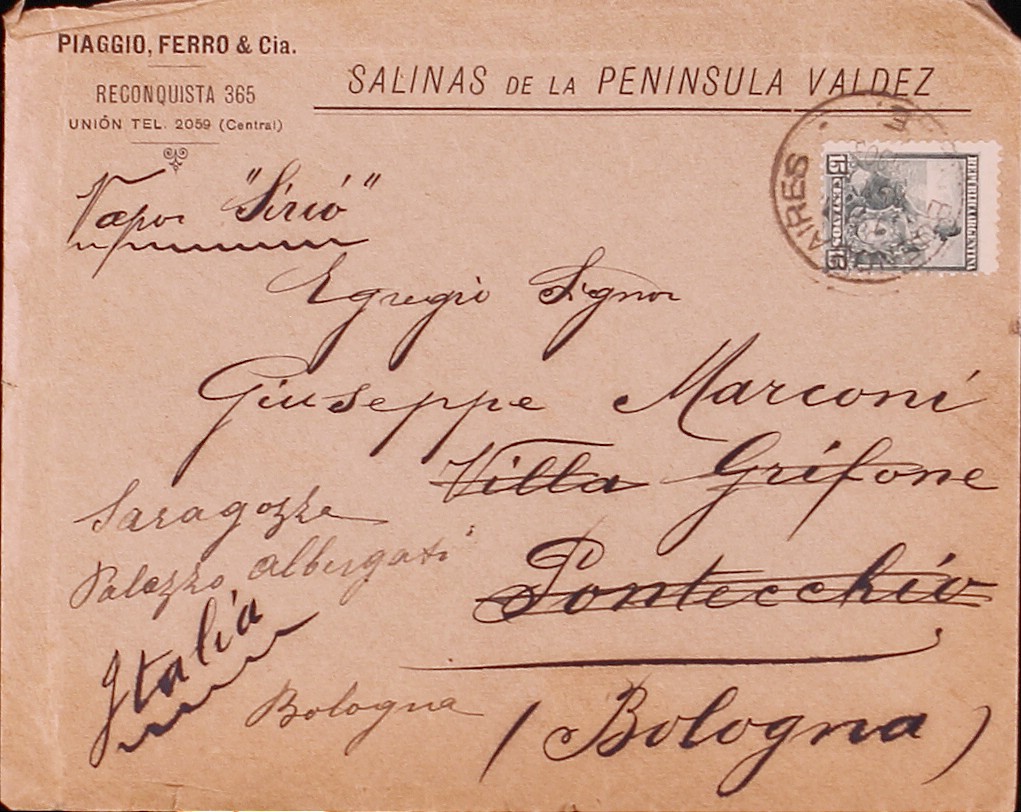 PIAGGIO, FERRO & Cia.
RECONQUISTA 365
UNIÓN TEL. 2059 (Central)
SALINAS DE LA PENINSULA VALDEZ
AIRES
15 CENTAVOS 15
REPUBLICA ARGENTINA
Vapor "Sirió"
Egregio Signor
Giuseppe Marconi
Villa Grifone
Saragozza
Palazzo Albergati
Pontecchio
Italia
Bologna
(Bologna)